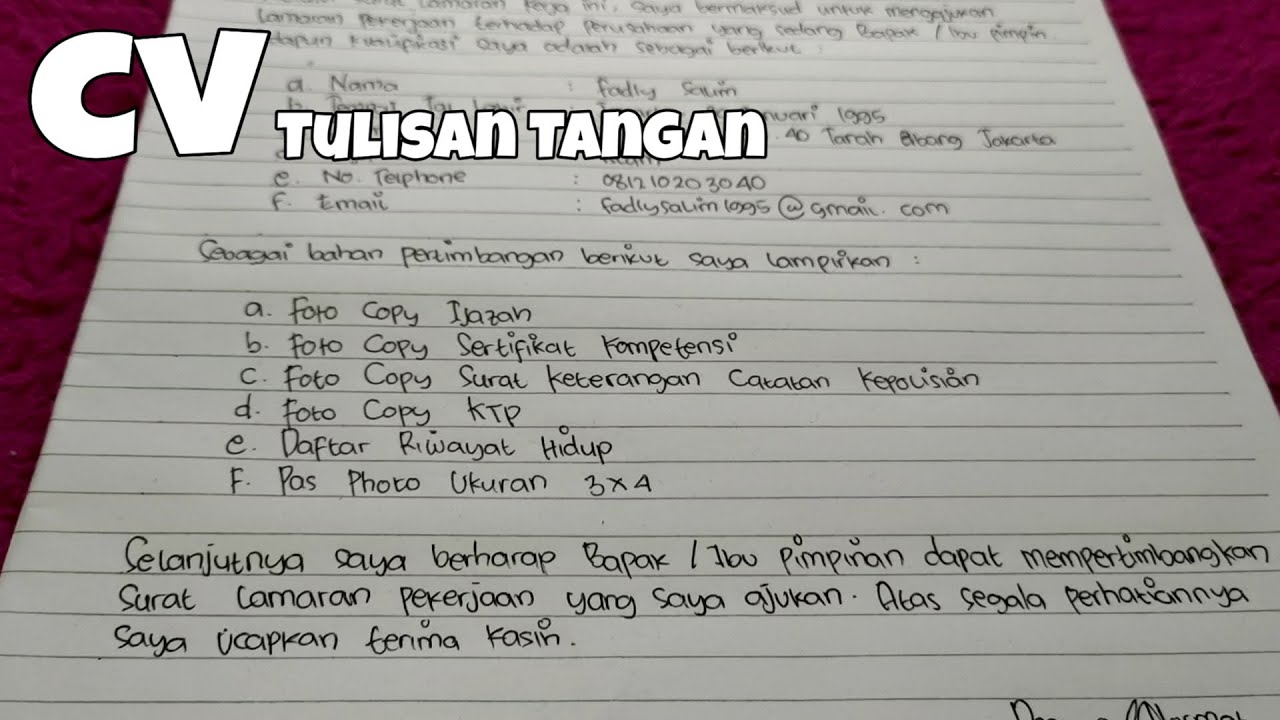 CV
TULISAN TANGAN
lamaran kerja ini, saya bermaksud untuk mengajukan
lamaran pekerjaan terhadap perusahaan yang sedang Bapak / Ibu pimpin.
saya adalah sebagai berikut :
a. Nama : Fadly Salim
1995
40 Tanah Abang Jakarta
e. No. Telphone : 081210203040
f. Email : fadlysalim1995@gmail.com
Sebagai bahan pertimbangan berikut saya lampirkan :
a. Foto Copy Ijazah
b. Foto Copy Sertifikat Kompetensi
c. Foto Copy Surat Keterangan Catatan Kepolisian
d. Foto Copy KTP
e. Daftar Riwayat Hidup
F. Pas Photo Ukuran 3x4
Selanjutnya saya berharap Bapak / Ibu pimpinan dapat mempertimbangkan
Surat lamaran pekerjaan yang saya ajukan. Atas segala perhatiannya
saya ucapkan terima kasih.